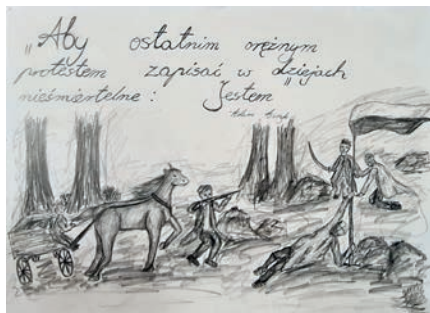 „Aby ostatnim orężnym
protestem zapisać w dziejach
nieśmiertelne: „Jestem